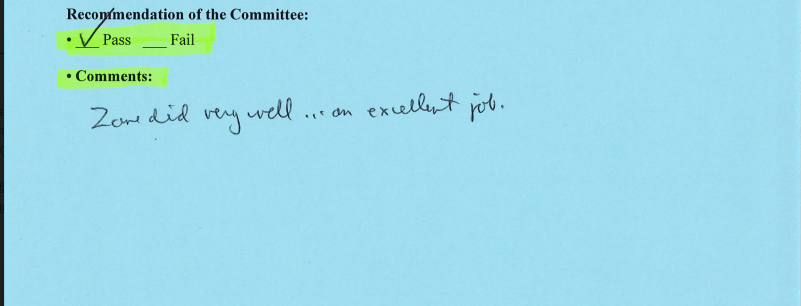 Recommendation of the Committee:
• ✓ Pass ___ Fail
• Comments:
Zane did very well ... an excellent job.